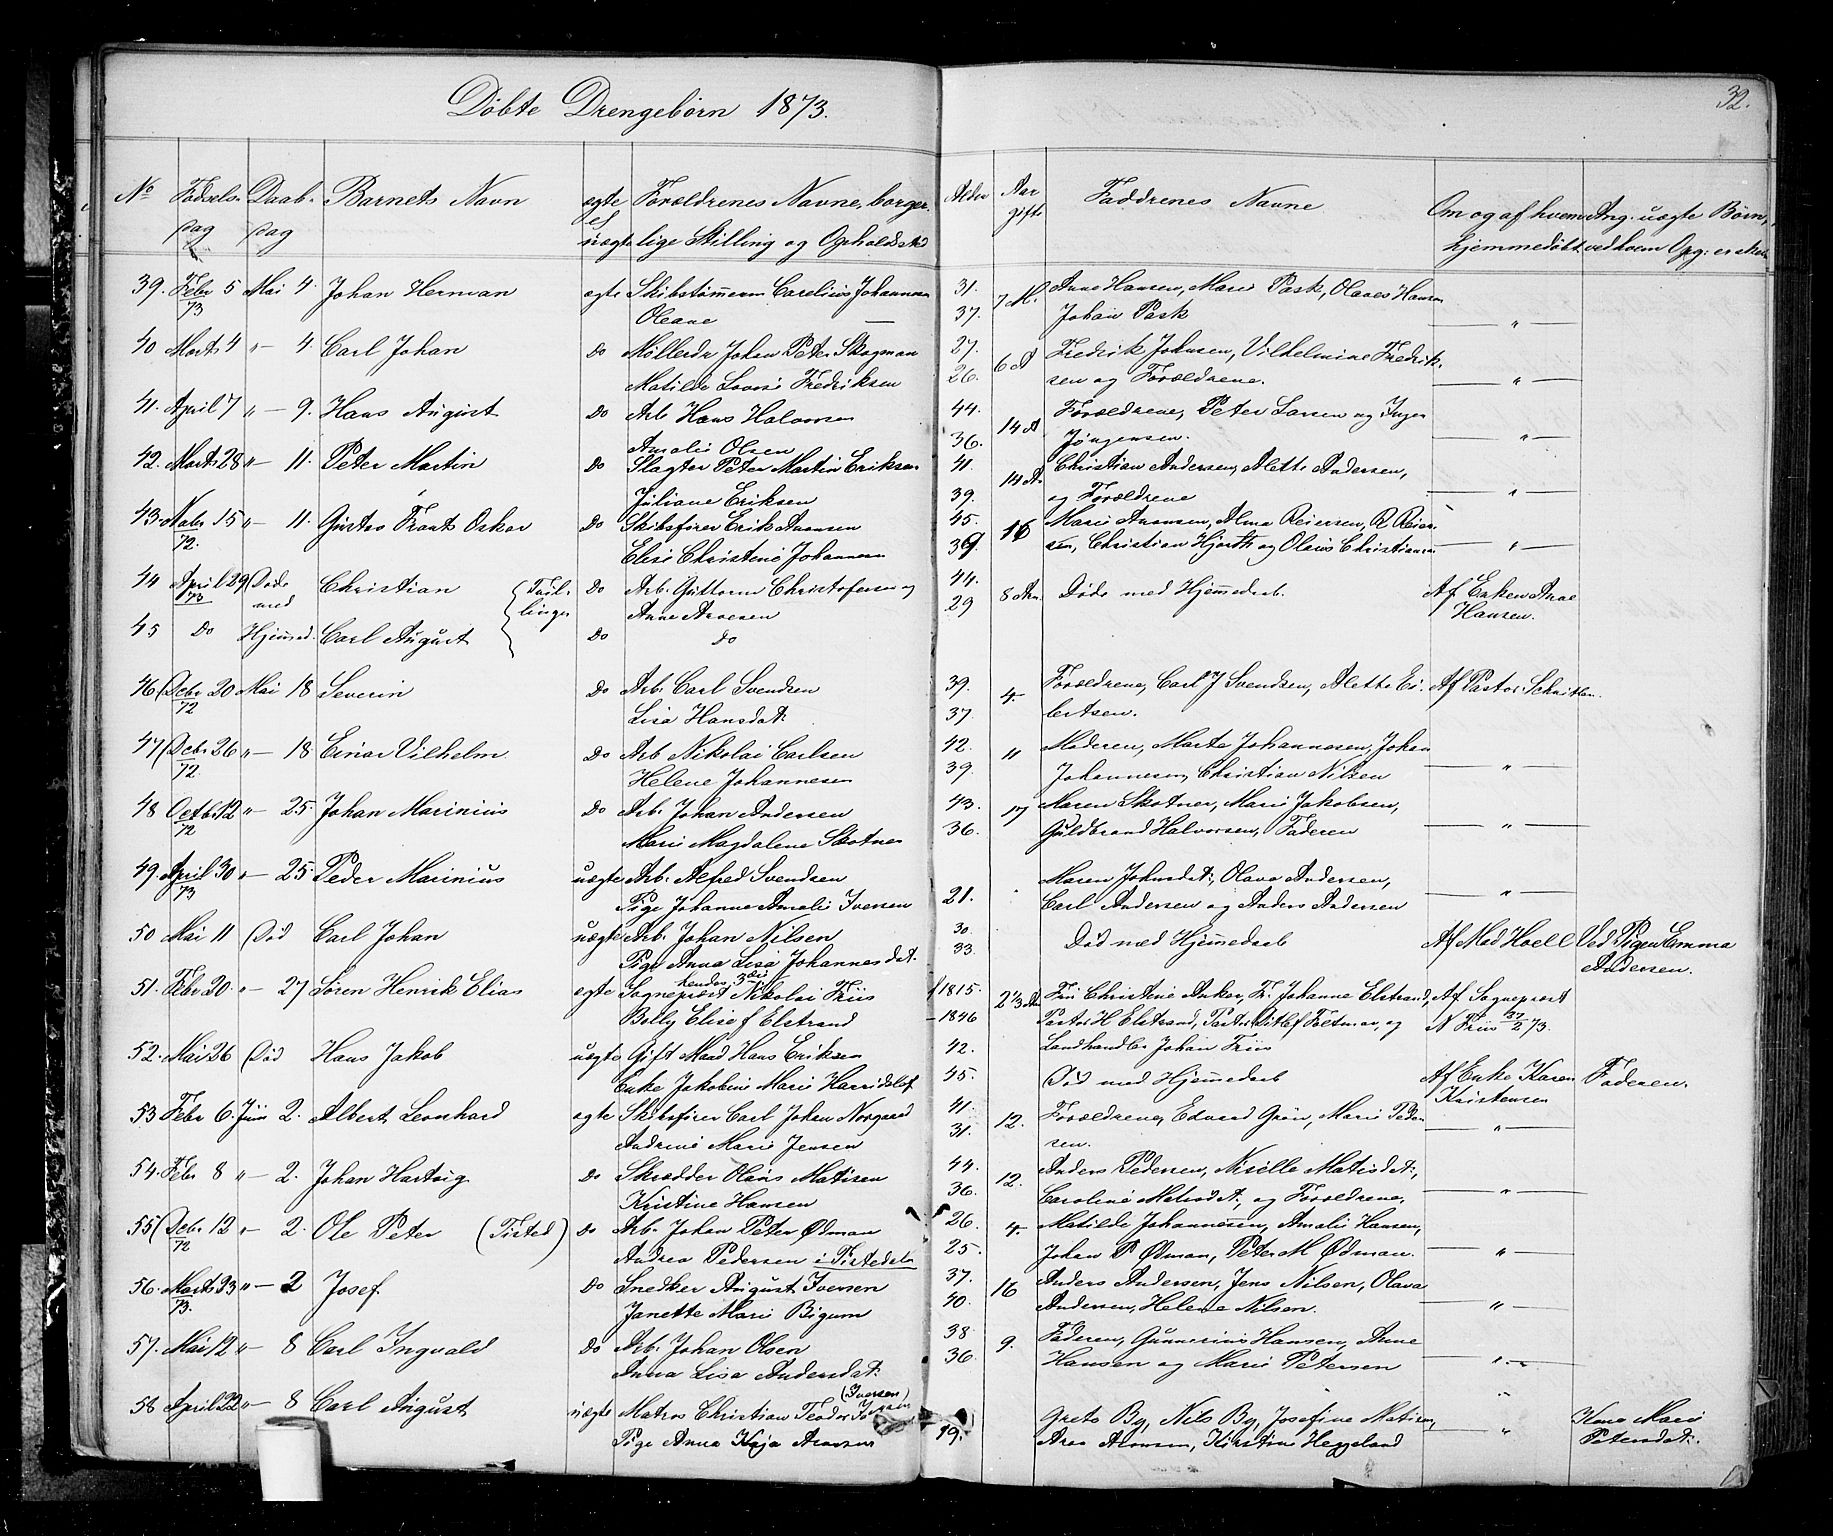 Døbte Drengebørn 1873.
32.
No Fødsels- Daab- Barnets Navn ægte Forældrenes Navne, borger- Alder Aar Faddrenes Navne Om og af hvem Ang. uægte Børn,
dag dag el uægte lige Stilling og Opholdssted gifte hjemmedøbt ved hvem Opg: er skeet
39. Febr 5 Mai 4. Johan Herman ægte Skibstømmerm Carelius Johannesen 31. 7 Anne Hansen, Marie Pask, Olaves Hansen
73 Oleane — 37. Johan Pask — " —
40 Marts 4 " — 4. Carl Johan Do Møllerdr Johan Peter Skogman 27. 6 A Fredrik Johnsen, Vilhelmine Fredrik-
Matilde Lovise Fredriksen 26. sen og Forældrene. — " —
41. April 7 " — 9. Hans August Do Arb Hans Halvorsen 44. 14 A Forældrene, Peter Larsen og Inger
Amalie Olsen 36. Jörgensen. — " —
42. Marts 28 " — 11. Peter Martin Do Slagter Peter Martin Eriksen 41. 14 A. Christian Andersen, Alette Andersen,
Juliane Eriksen 39. og Forældrene — " —
43. Nobr 15 " — 11. Gustav Frants Oskar Do Skibsfører Erik Aronsen 45. 16 Marie Aronsen, Alma Reiersen, R. Reier-
72. Elise Christene Johannesen 39. sen, Christian Hjorth og Olaus Christiansen — " —
44 April 29 Døde Christian { Tvil- Do Arb. Guttorm Christofersen og 44. 8 Aar Døde med Hjemmedaab. Af Enken Anne
73 med linger Anne Arnesen 29 Hansen.
45 Do Hjemmed. Carl August Do Do
46 Decbr 20 Mai 18 Severin Do Arb. Carl Svendsen 39. 4. Forældrene, Carl J Svendsen, Alette Ei- Af Pastor Schnitler.
72 Lisa Hansdat: 37. bertsen.
47 Decbr 26 " — 18 Einar Vilhelm Do Arb Nikolai Carlsen 42. 11 Moderen, Marte Johannesen, Johan
72. Helene Johannesen 39. Johannesen, Christian Nilsen — " —
48 Octb. 12 " — 25. Johan Marinius Do Arb. Johan Andersen 43. 17 Maren Skotner, Marie Jakobsen,
72 Marie Magdalene Skotner 36. Guldbrand Halvorsen, Faderen — " —
49. April 30 " — 25. Peder Marinius uægte Arb. Alfred Svendsen Maren Johnsdat:, Olava Andersen,
73 Pige Johanne Amalie Iversen 21. Carl Andersen og Anders Andersen — " —
50 Mai 11 Død Carl Johan uægte Arb. Johan Nilsen 30. Død med Hjemmedaab Af Mad Hoell Ved Pigen Emma
Pige Anna Lisa Johannesdat. hendes 3die 33. Andersen.
51. Febr 20. " — 27 Søren Henrik Elias ægte Sogneprest Nikolai Friis f 1815. 2 1/3 Aar Fru Christine Anker, Fr. Johanne Elstrand, Af Sogneprest
Bolly Elise f Elstrand — 1846 Pastor H Elstrand, Pastor Ditlef Feltman, og N Friis 27/2 73.
52. Mai 26 Død Hans Jakob uægte Gift Mand Hans Eriksen 42. Landhandler Johan Friis
Enke Jakobine Marie 45. Død med Hjemmedaab Af Enke Karen Faderen.
53 Febr 6. Juni 2. Albert Leonhard ægte Skibsfører Carl Johan Norgaard 41. 12. Forældrene, Edvard Grøn, Marie Peder- Kristensen
Andrine Marie Jensen 31. sen. — " —
54. Febr 8 " — 2. Johan Hartvig Do Skrædder Olaus Matisen 44. 12. Anders Pedersen, Nikolle Matisdat,
Kristine Hansen 36. Caroline Matisdat, og Forældrene, — " —
55 Decbr 12 " — 2. Ole Peter (Tisted) Do Arb. Johan Peter Ødman 26. 4. Matilde Johannesen, Amalie Hansen,
72 Andrea Pedersen i Tistedalen 25. Johan P Ødman, Peter M Ødman. — " —
56. Marts 23 " — 2 Josef Do Snedker August Iversen 37. 16 Anders Andersen, Jens Nilsen, Olava
73. Janette Marie Bigum 40. Andersen, Helene Nilsen. — " —
57. Mai 12 " — 8 Carl Ingvald Do Arb. Johan Olsen 38 9. Faderen, Gunnerius Hansen, Anne
Anna Lisa Andersdat: 36. Hansen og Marie Petersen — " —
58 April 22 " — 8 Carl August uægte Matros Christian Teodor (Iversen) Greto By, Nils By, Josefine Matisen, Kone Marie
Pige Anna Kaja Aronsen 19. Aron Aronsen, Kirstine Heggeland — " — Petersdat: